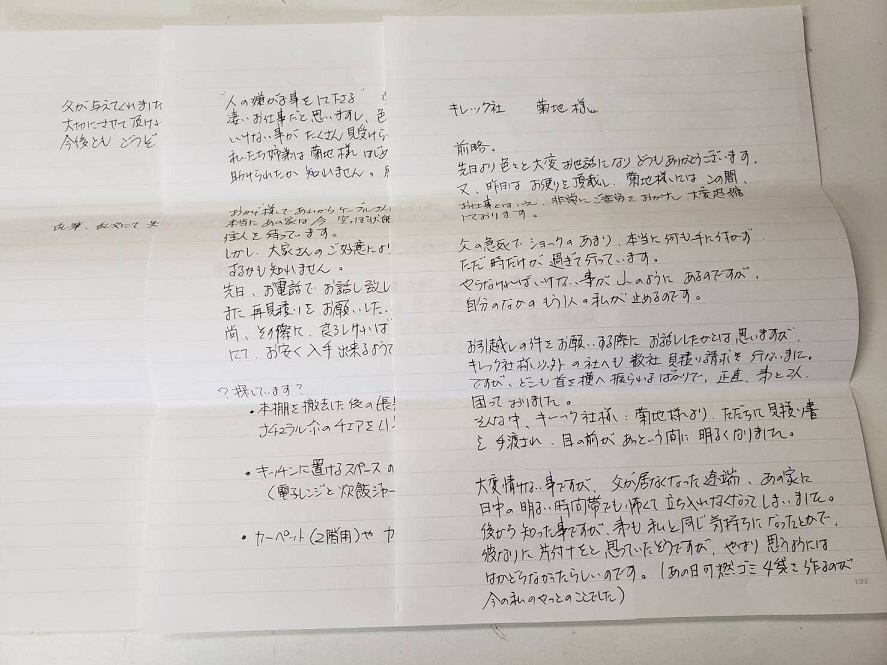 キレック社 菊地様
前略。
先日より色々と大変お世話になりどうもありがとうございます。
又、昨日はお便りを頂戴し、菊地様にはこの間、
お仕事とはいえ、非常にご苦労をおかけし大変恐縮
しております。
父の急死でショックのあまり、本当に何も手に付かず
ただ時だけが過ぎて行っています。
やらなければいけない事が山のようにあるのですが、
自分のなかのもう1人の私が止めるのです。
お引越しの件をお願いする際にお話ししたかとは思いますが、
キレック社様以外の社へも数社見積り請求を行ないました。
ですが、どこも首を横へ振られるばかりで、正直、弟と2人、
困っておりました。
そんな中、キレック社様:菊地様より、ただちに見積り書
を手渡され、目の前があっという間に明るくなりました。
大変情けない事ですが、父が居なくなった途端、あの家に
日中の明るい時間帯でも怖くて立ち入れなくなってしまいました。
後から知った事ですが、弟も私と同じ気持ちになったとかで、
彼なりに片付けをと思っていたそうですが、やはり思うようには
はかどらなかったらしいのです。(あの日可燃ゴミ4袋を作るのが
今の私のやっとのことでした)
LIFE
"人の嫌がる事をして下さる"
凄いお仕事だと思いますし、色
いけない事がたくさん見受けら
私たち姉弟は菊地様はじめ
助けられたか知れません。
おかげ様で、あれからケーブルさん
本当にあの家は今、空っぽ状態
住人を待っています。
しかし、大家さんのご好意により
なるかも知れません。
先日、お電話でお話し致し
また再見積りをお願いした、
尚、その際に、良ろしければ
にて、お安く入手出来るようで
?探しています?
・本棚を撤去した後の(長
ナチュラル木のチェアをい
・キッチンに置けるスペースの
(電子レンジと炊飯ジャー
・カーペット(2階用)や カ
父が与えてくれました
大切にさせて頂ける
今後とも どうぞ
乱筆、乱文にて失